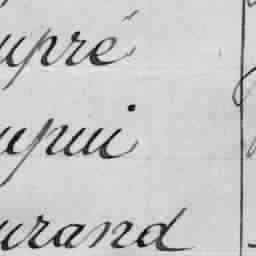 upré
upui
urand